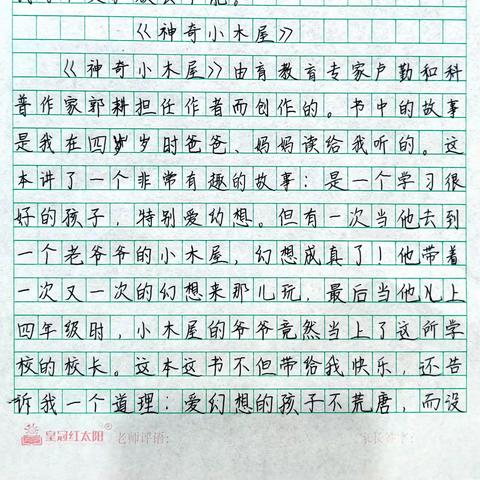 《神奇小木屋》
《神奇小木屋》由育教育专家卢勤和科
普作家郭耕担任作者而创作的。书中的故事
是我在四岁岁时爸爸、妈妈读给我听的。这
本讲了一个非常有趣的故事：是一个学习很
好的孩子，特别爱幻想。但有一次当他去到
一个老爷爷的小木屋，幻想成真了！他带着
一次又一次的幻想来那儿玩，最后当他儿上
四年级时，小木屋的爷爷竟然当上了这所学
校的校长。这本这书不但带给我快乐，还告
诉我一个道理：爱幻想的孩子不荒唐，而没
皇冠红太阳®
老师评语：